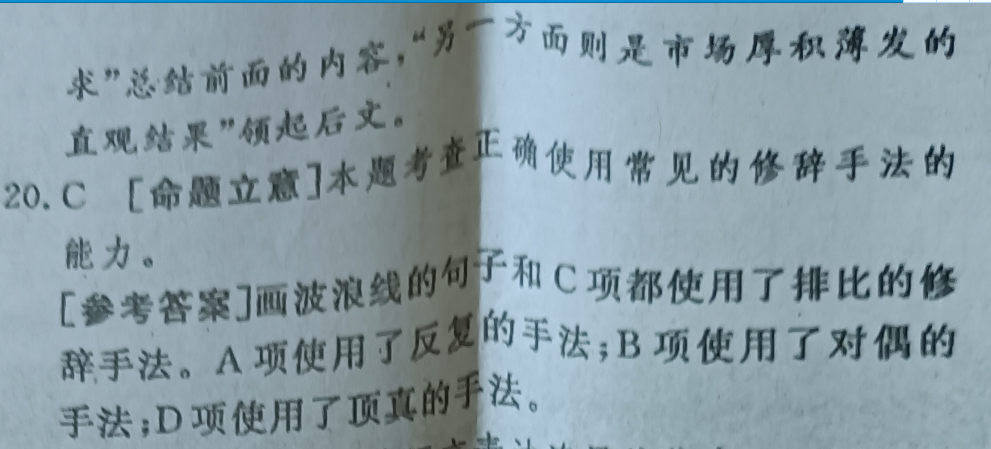 求”总结前面的内容，“另一方面则是市场厚积薄发的
直观结果”领起后文。
20. C [命题立意]本题考查正确使用常见的修辞手法的
能力。
[参考答案]画波浪线的句子和C项都使用了排比的修
辞手法。A项使用了反复的手法；B项使用了对偶的
手法；D项使用了顶真的手法。